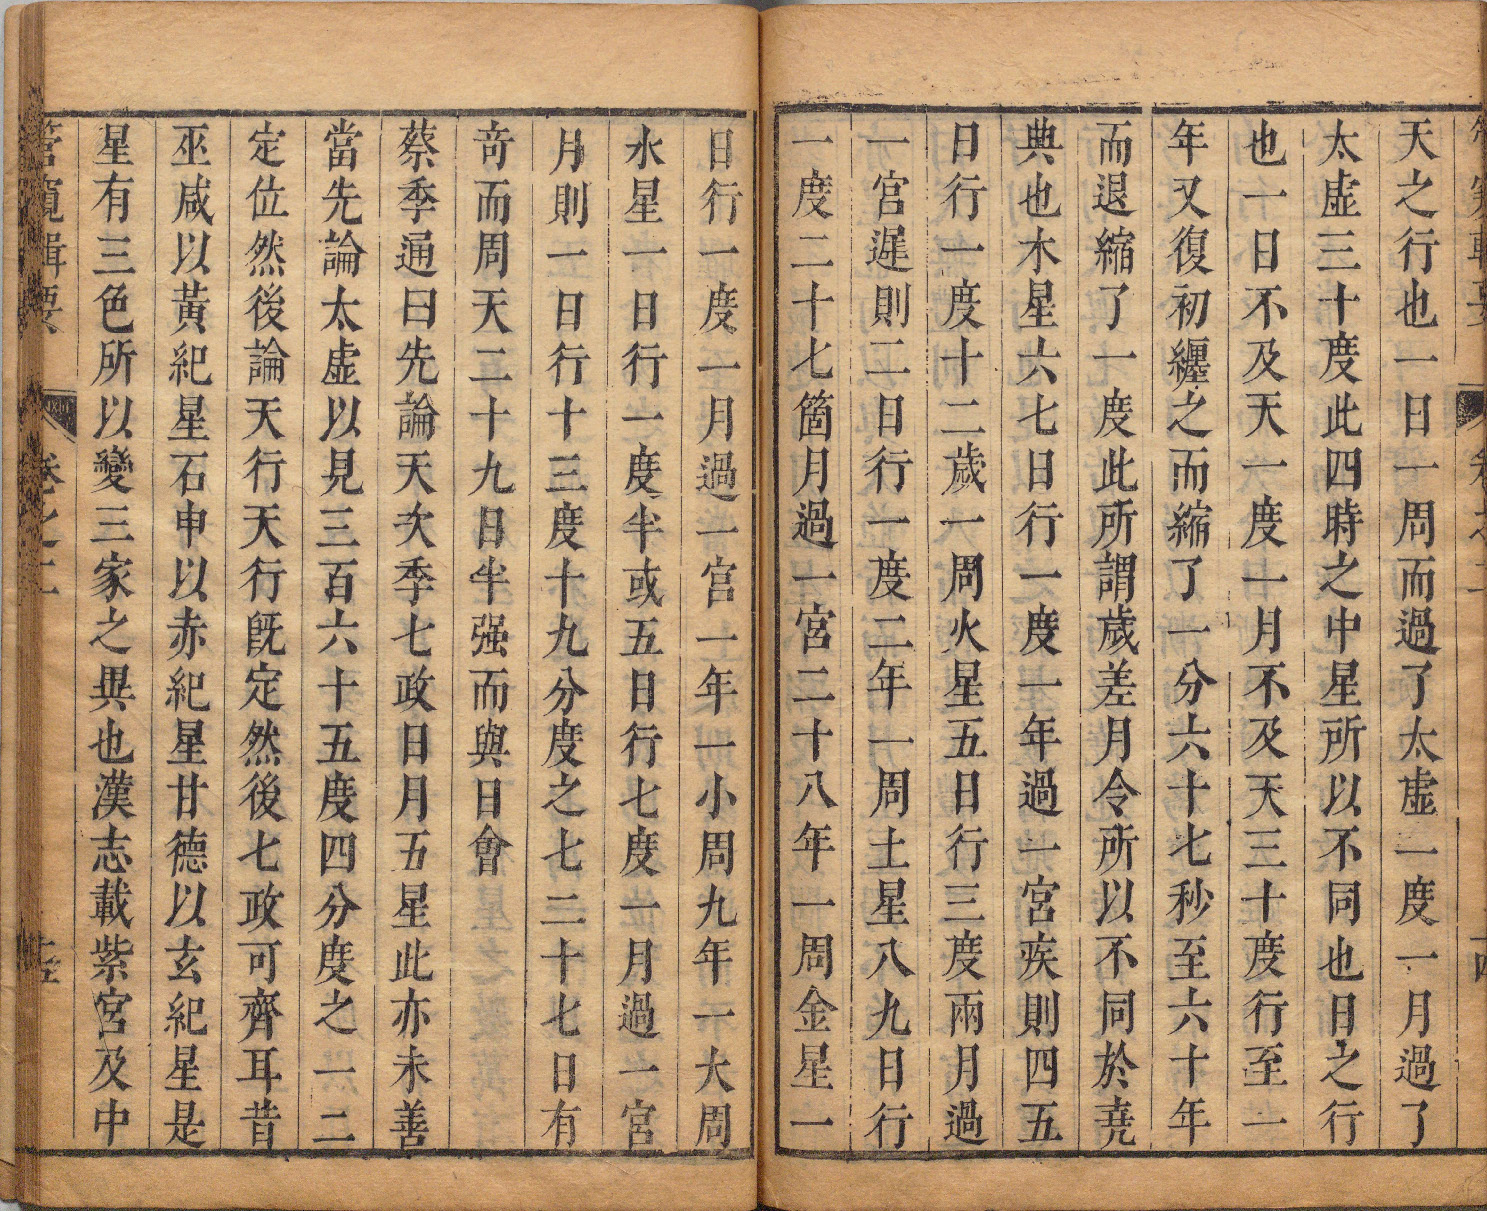 天之行也一日一周而過了太虛一度一月過了
太虛三十度此四時之中星所以不同也日之行
也一日不及天一度一月不及天三十度行至一
年又復初纏之而縮了一分六十七秒至六十年
而退縮了一度此所謂歲差月令所以不同於堯
典也木星六七日行一度一年過一宮疾則四五
日行一度十二歲一周火星五日行三度兩月過
一宮遲則二日行一度二年一周土星八九日行
一度二十七箇月過一宮二十八年一周金星一
日行一度一月過一宮一年一小周九年一大周
水星一日行一度半或五日行七度一月過一宮
月則一日行十三度十九分度之七二十七日有
奇而周天二十九日半强而與日會
蔡季通曰先論天次季七政日月五星此亦未善
當先論太虛以見三百六十五度四分度之一二
定位然後論天行天行既定然後七政可齊耳昔
巫咸以黃紀星石申以赤紀星甘德以玄紀星是
星有三色所以變三家之異也漢志載紫宮及中
管窺輯要 卷之二